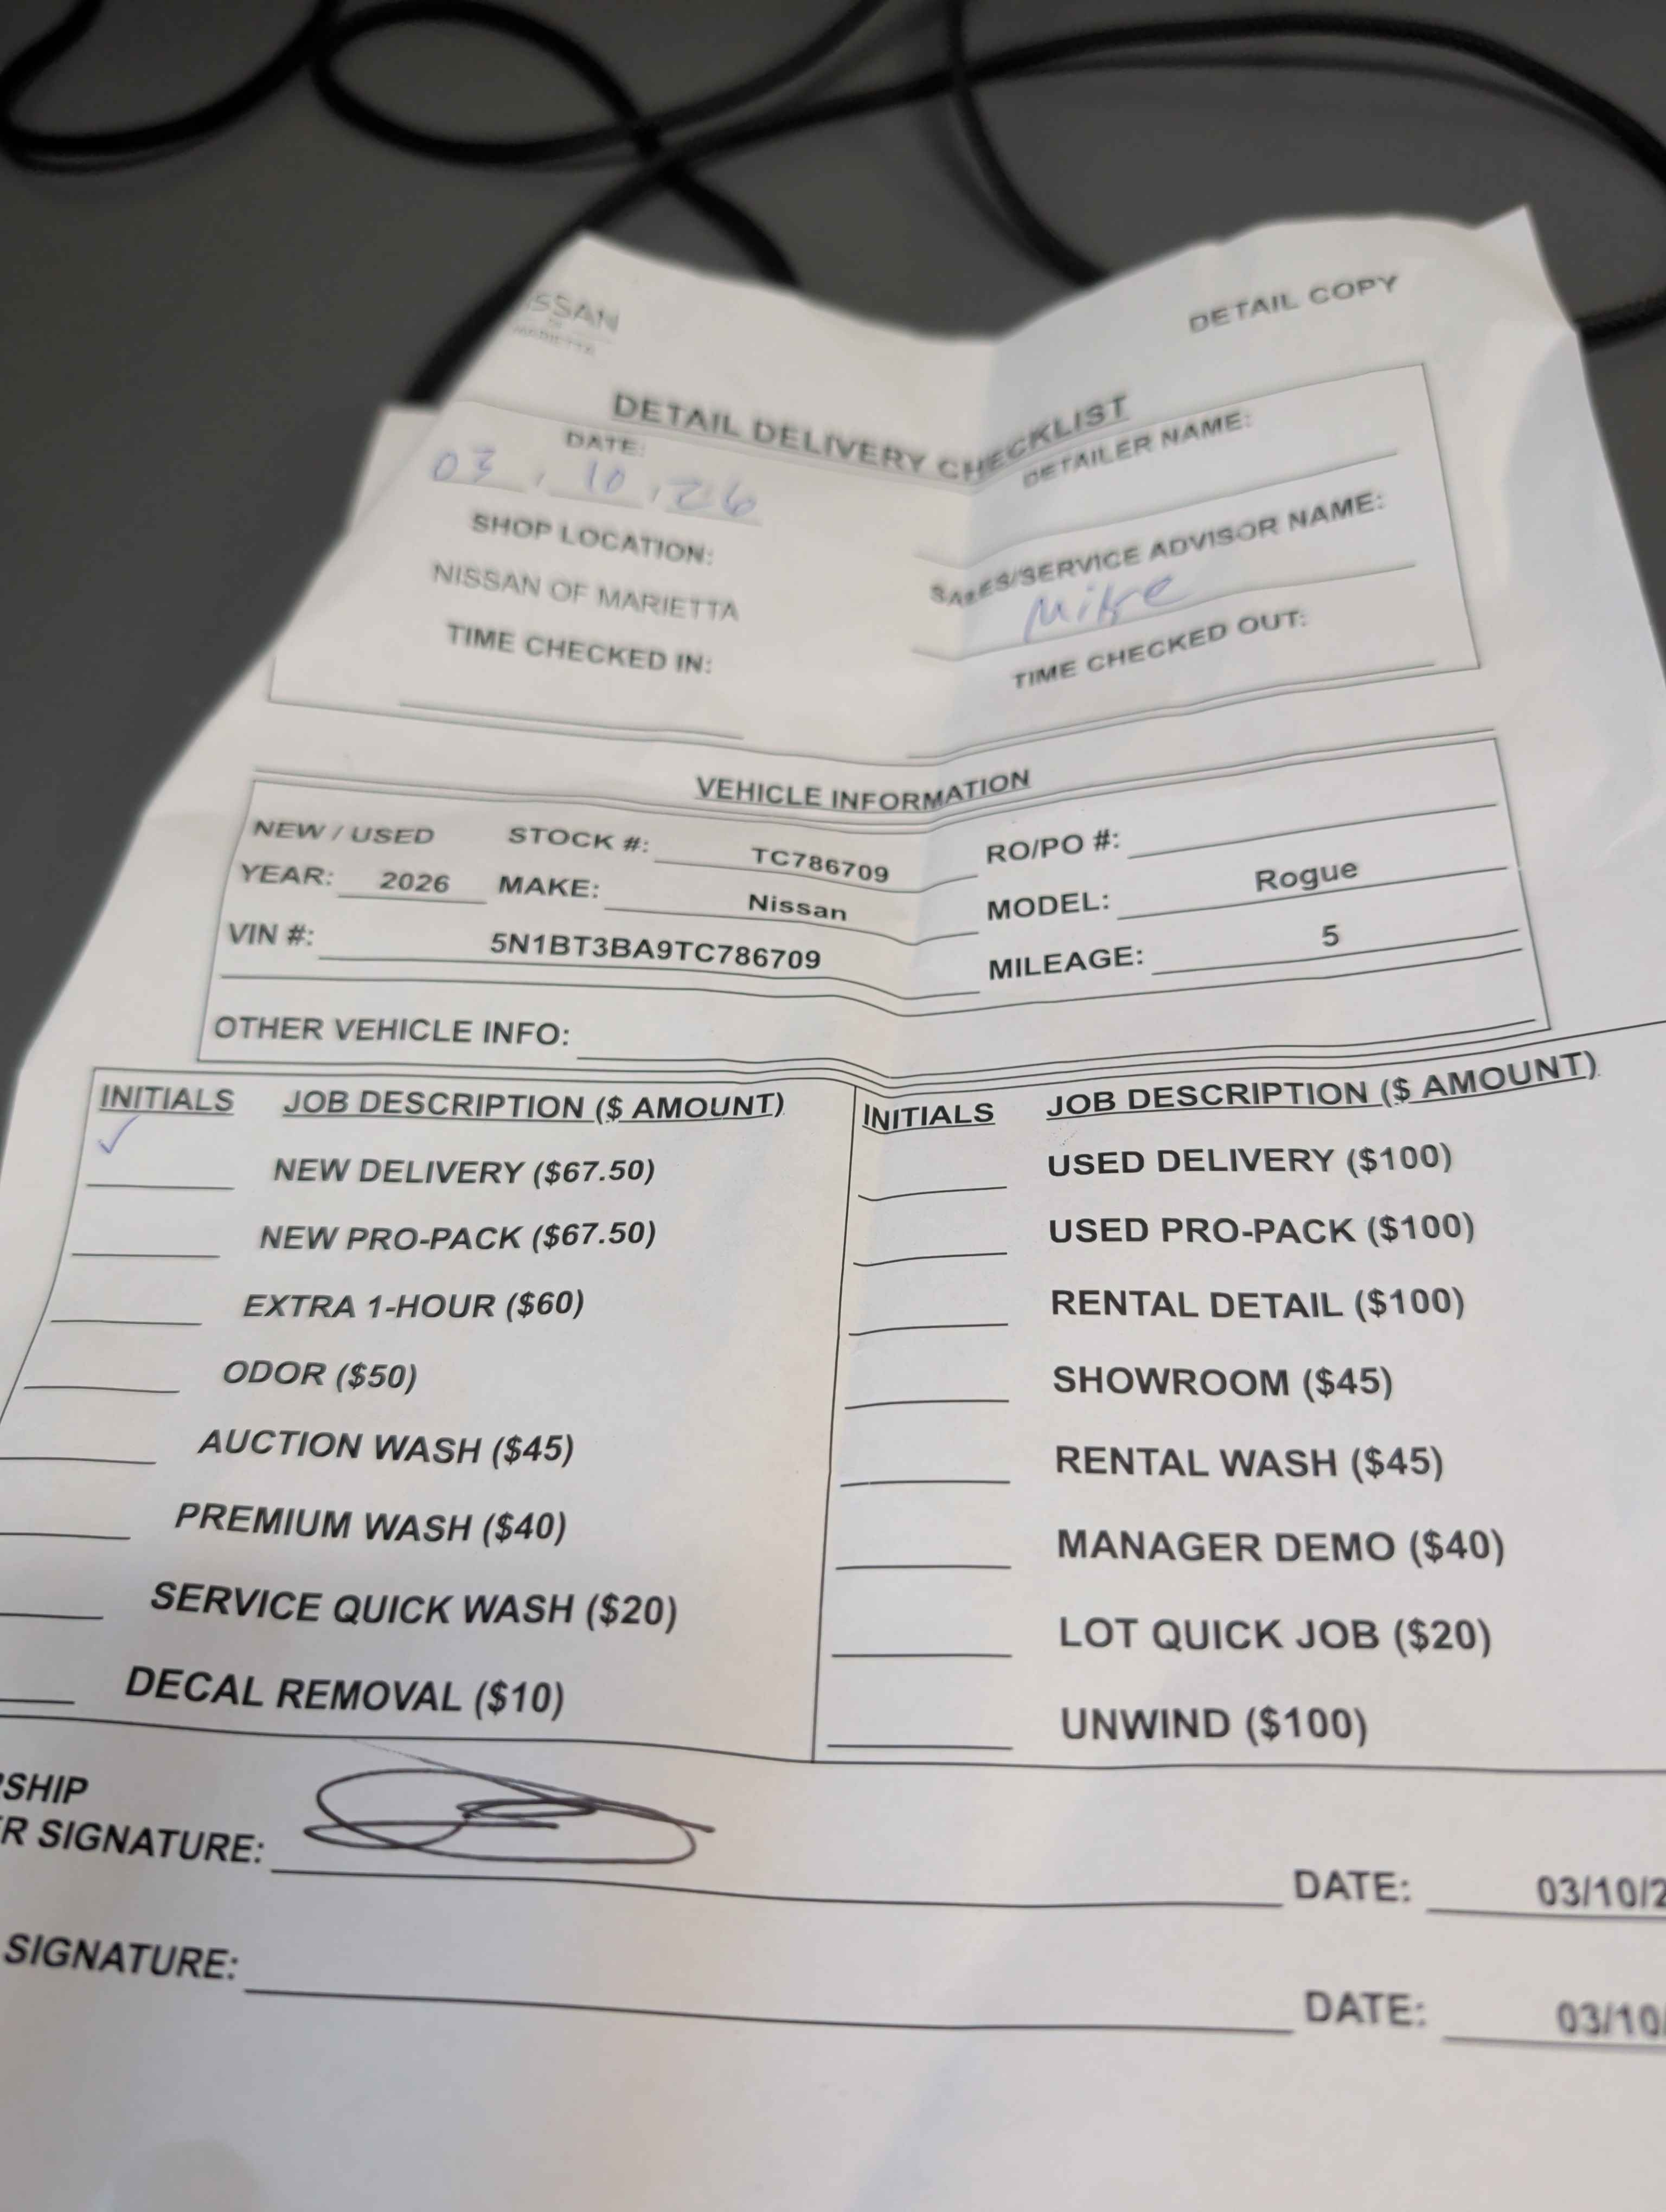 ISSAN
OF
MARIETTA
DETAIL COPY
DETAIL DELIVERY CHECKLIST
DATE:
03 . 10 . 26
DETAILER NAME:
SHOP LOCATION:
NISSAN OF MARIETTA
SALES/SERVICE ADVISOR NAME:
Mike
TIME CHECKED IN:
TIME CHECKED OUT:
VEHICLE INFORMATION
NEW / USED STOCK #: TC786709 RO/PO #:
YEAR: 2026 MAKE: Nissan MODEL: Rogue
VIN #: 5N1BT3BA9TC786709 MILEAGE: 5
OTHER VEHICLE INFO:
INITIALS JOB DESCRIPTION ($ AMOUNT)
✓
NEW DELIVERY ($67.50)
NEW PRO-PACK ($67.50)
EXTRA 1-HOUR ($60)
ODOR ($50)
AUCTION WASH ($45)
PREMIUM WASH ($40)
SERVICE QUICK WASH ($20)
DECAL REMOVAL ($10)
INITIALS JOB DESCRIPTION ($ AMOUNT)
USED DELIVERY ($100)
USED PRO-PACK ($100)
RENTAL DETAIL ($100)
SHOWROOM ($45)
RENTAL WASH ($45)
MANAGER DEMO ($40)
LOT QUICK JOB ($20)
UNWIND ($100)
RSHIP
R SIGNATURE: DATE: 03/10/2
SIGNATURE: DATE: 03/10/